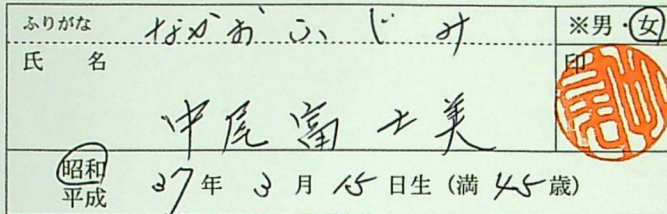 ふりがな なかおふじみ ※男・女
氏名 印
中尾富士美
昭和
平成 37年3月15日生(満45歳)